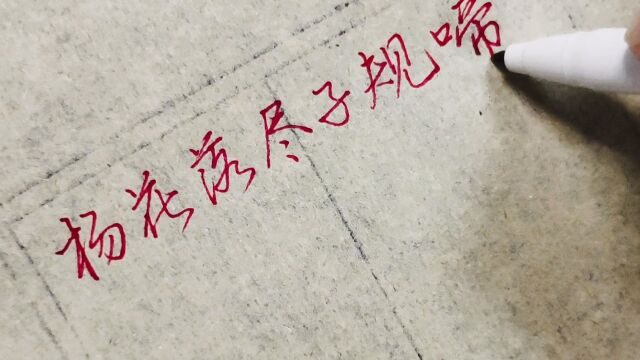 杨花落尽子规啼